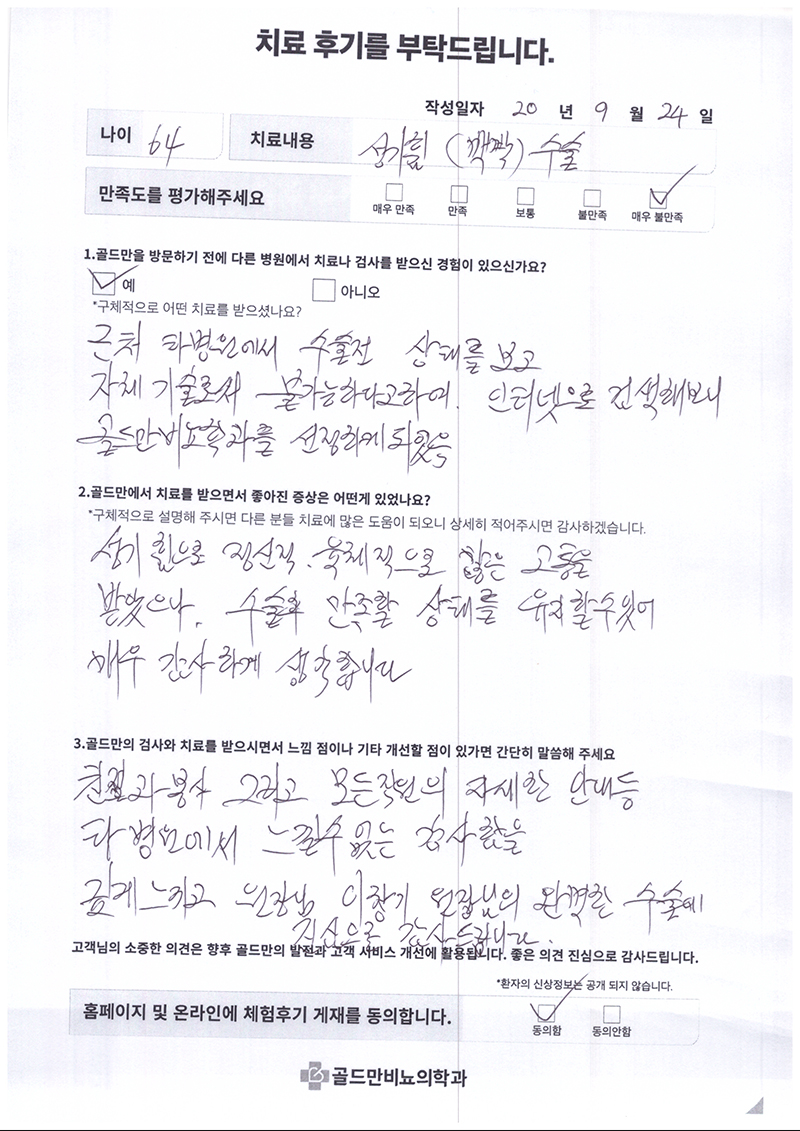 치료 후기를 부탁드립니다.
작성일자 20 년 9 월 24 일
나이 64 치료내용 성기휨 (깍짝) 수술
만족도를 평가해주세요 매우 만족 만족 보통 불만족 매우 불만족
1.골드만을 방문하기 전에 다른 병원에서 치료나 검사를 받으신 경험이 있으신가요?
예 아니오
*구체적으로 어떤 치료를 받으셨나요?
근처 타병원에서 수술전 상태를 보고
자체 기술로서 불가능하다고하여. 인터넷으로 검색해보니
골드만비뇨학과를 선정하게되었음
2.골드만에서 치료를 받으면서 좋아진 증상은 어떤게 있었나요?
*구체적으로 설명해 주시면 다른 분들 치료에 많은 도움이 되오니 상세히 적어주시면 감사하겠습니다.
성기 휨으로 정신적.육체적으로 많은 고통을
받았으나. 수술후 만족할 상태를 유지할수있어
매우 감사하게 생각합니다
3.골드만의 검사와 치료를 받으시면서 느낌 점이나 기타 개선할 점이 있가면 간단히 말씀해 주세요
친절과 봉사 그리고 모든직원의 자세한 안내등
타 병원에서 느낄수 없는 감사함을
깊게느끼고 원장님 이창기 원장님의 완벽한 수술에
진심으로 감사드립니다.
고객님의 소중한 의견은 향후 골드만의 발전과 고객 서비스 개선에 활용됩니다. 좋은 의견 진심으로 감사드립니다.
*환자의 신상정보는 공개 되지 않습니다.
홈페이지 및 온라인에 체험후기 게재를 동의합니다. 동의함 동의안함
골드만비뇨의학과